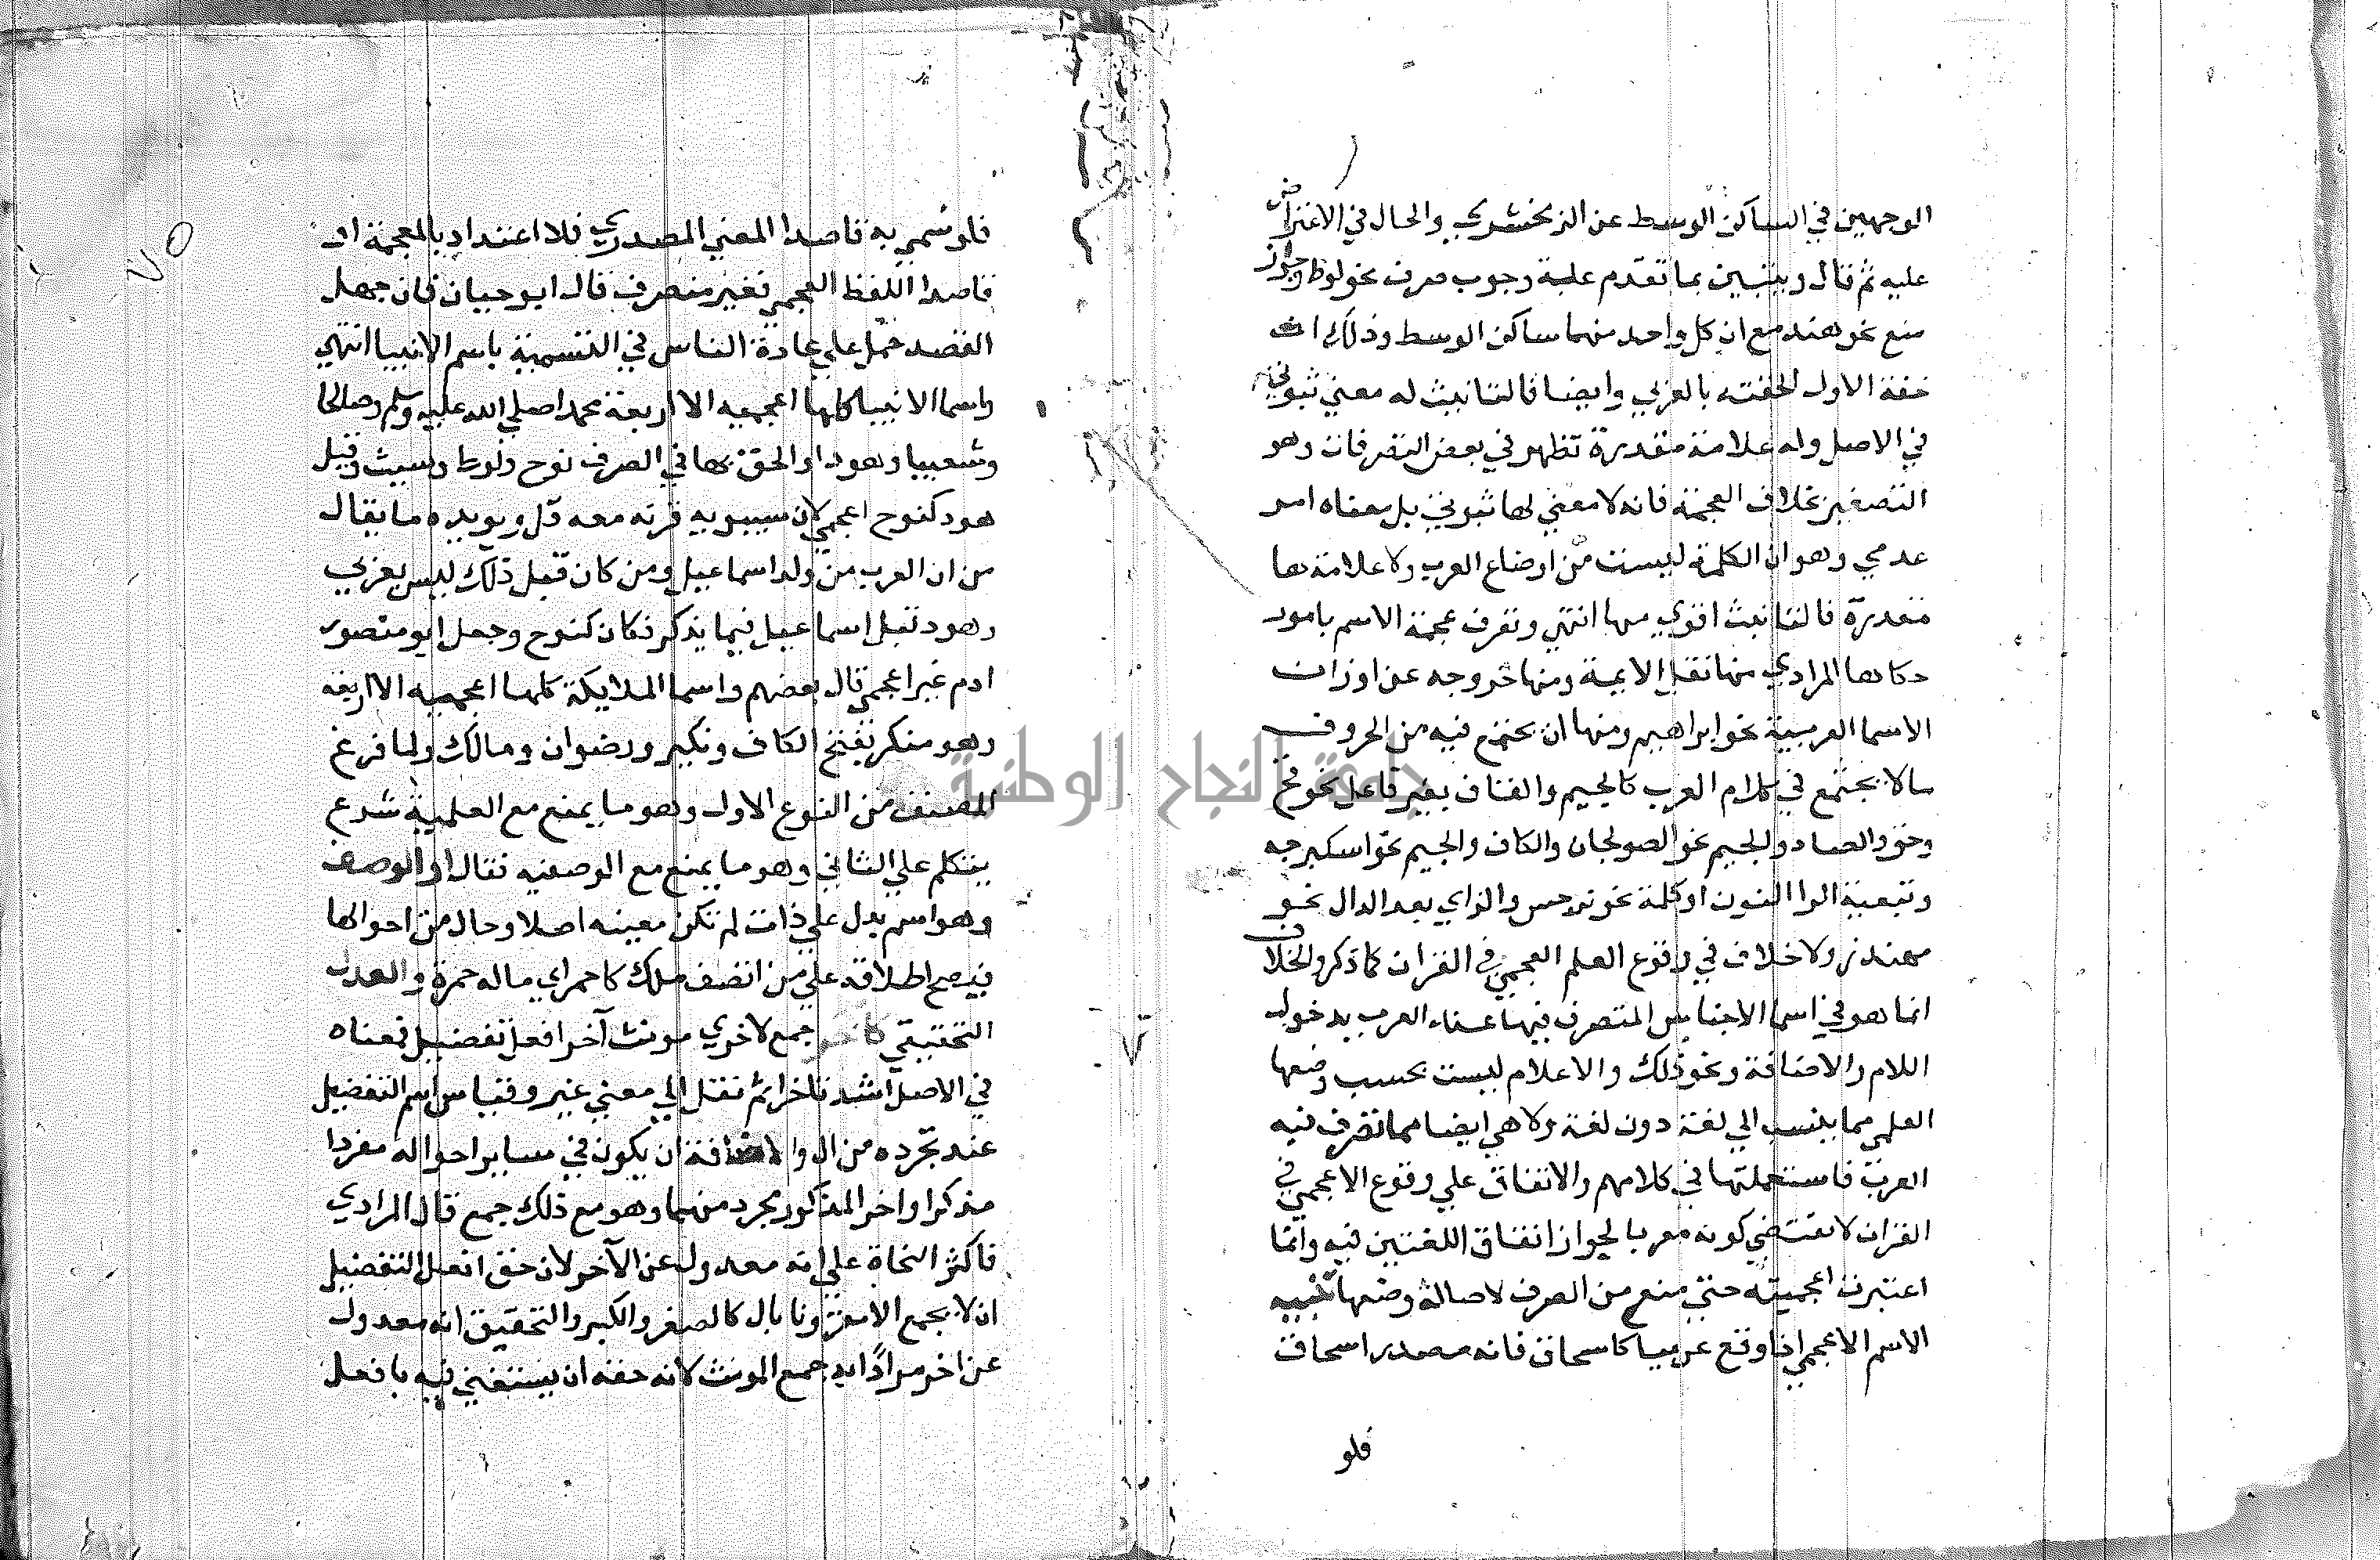 الوجهين في الساكن الوسط عن الزمخشري والحال في الاعتراض
عليه ثم قال ويتبين بما تقدم علية وجوب صرف نحو لوط وجواز
منع نحو هند مع ان كل واحد منهما ساكن الوسط وذلك ان
خفة الاول الحقته بالعربي وايضا فالتانيث له معني ثبوتي
في الاصل وله علامة مقدرة تظهر في بعض التصرفات وهو
التصغير بخلاف العجمة فانه لا معني لها ثبوتي بل معناه امر
عدمي وهو ان الكلمة ليست من اوضاع العرب ولا علامة لها
مقدرة فالتانيث اقوي منها انتهي وتعرف عجمة الاسم بامور
حكاها المرادي منها نقل الايمة ومنها خروجه عن اوزان
الاسما العربية نحو ابراهيم ومنها ان يجتمع فيه من الحروف
مالا يجتمع في كلام العرب كالجيم والقاف بغير فاعل نحو
والصاد والجيم نحو الصولجان والكاف والجيم نحو اسكرجه
وتبعية الرا النون اول كلمة نحو نرجس والزاي بعد الدال نحو
مهندز ولا خلاف في وقوع العلم العجمي في القران كما ذكر والخلاف
انما هو في اسما الاجناس المتصرف فيها عند العرب بدخول
اللام والاضافة ونحو ذلك والاعلام ليست بحسب وضعها
العلمي مما ينسب الي لغة دون لغة ولا هي ايضا مما تصرف فيه
العرب فاستعملتها في كلامهم والاتفاق علي وقوع الاعجمي في
القران لا يقتضي كونه معربا لجواز اتفاق اللغتين فيه وانما
اعتبرت اعجميته حتي منع من الصرف لاصالة وضعها تنبيه
الاسم الاعجمي اذا وقع عربيا كاسحاق فانه مصدر اسحاق
فلو
٧٥
فلو سمي به قاصدا المعني المصدري فلا اعتداد بالعجمة او
قاصدا اللفظ العجمي فغير منصرف قال ابو حيان فان جهل
القصد حمل علي عادة الناس في التسمية باسم الانبيا انتهي
واسما الانبيا كلها اعجميه الا اربعة محمدا صلي الله عليه وسلم وصالحا
وشعيبا وهودا والحق بها في الصرف نوح ولوط وشيث وقيل
هود كنوح اعجمي لان سيبويه قرنه معه قل ويويده ما يقال
من ان العرب من ولد اسماعيل ومن كان قبل ذلك ليس بعربي
وهود قبل اسماعيل فيما يذكر فكان كنوح وجعل ابو منصور
ادم غير اعجمي قال بعضهم واسما الملايكة كلها اعجميه الا اربعه
وهو منكر بفتح الكاف ونكير ورضوان ومالك ولما فرغ
المصنف من النوع الاول وهو ما يمنع مع العلمية شرع
يتكلم علي الثاني وهو ما يمنع مع الوصفيه فقال او الوصف
وهو اسم يدل علي ذات لم تكن معينه اصلا وحال من احوالها
فيصح اطلاقه علي من اتصف ملك كاحمر اي ما له حمرة والعدل
التحقيقي كاخر جمع لاخري مونث آخر افعل تفضيل فمعناه
في الاصل اشد تاخرا ثم نقل الي معني غير وقياس اسم التفضيل
عند تجرده من ال والاضافة ان يكون في ساير احواله مفردا
مذكرا واخر المذكور مجرد منهما وهو مع ذلك جمع قال المرادي
فاكثر النحاة علي انه معدول عن الآخر لان حق افعل التفضيل
ان لا يجمع الا مقرونا بال كالصغر والكبر والتحقيق انه معدول
عن اخر مرادا به جمع المونث لانه حقه ان يستغني فيه بافعل
جامعة النجاح الوطنية